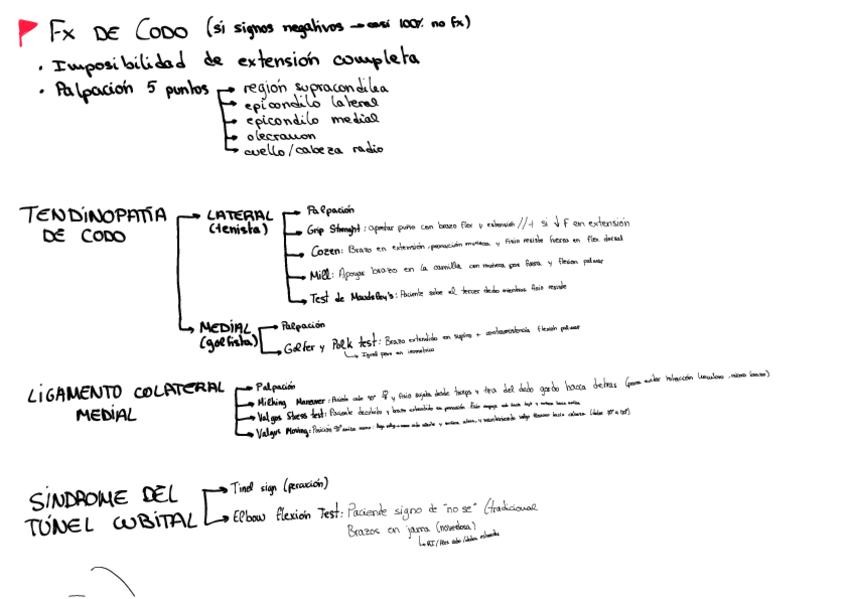 Fx DE CODO (si signos negativos → casi 100% no fx)
· Imposibilidad de extensión completa
· Palpación 5 puntos → región supracondilea
→ epicondilo lateral
→ epicondilo medial
→ olecranon
→ cuello/cabeza radio
TENDINOPATÍA DE CODO
LATERAL (tenista)
→ Palpación
→ Grip Strenght: apretar puño con brazo flex y extensión // + si ↓ F en extensión
→ Cozen: Brazo en extensión, pronación muñeca y fisio resiste fuerza en flex dorsal
→ Mill: Apoyar brazo en la camilla con muñeca por fuera y flexion palmar
→ Test de Maudsley's: Paciente sube el tercer dedo mientras fisio resiste
MEDIAL (golfista)
→ Palpación
→ Golfer y Polk test: Brazo extendido en supino + contraresistencia flexión palmar
↳ Igual pero en isometrico
LIGAMENTO COLATERAL MEDIAL
→ Palpación
→ Milking Maneuver: y fisio sujeta desde y tira del dedo gordo hacia detras
→ Valgus Stress test: Paciente decúbito y brazo extendido en
→ Valgus Moving: Posición
SÍNDROME DEL TÚNEL CUBITAL
→ Tinel sign (percusión)
→ Elbow flexión Test: Paciente signo de "no se" (tradicional
Brazos en jarra (novedosa)